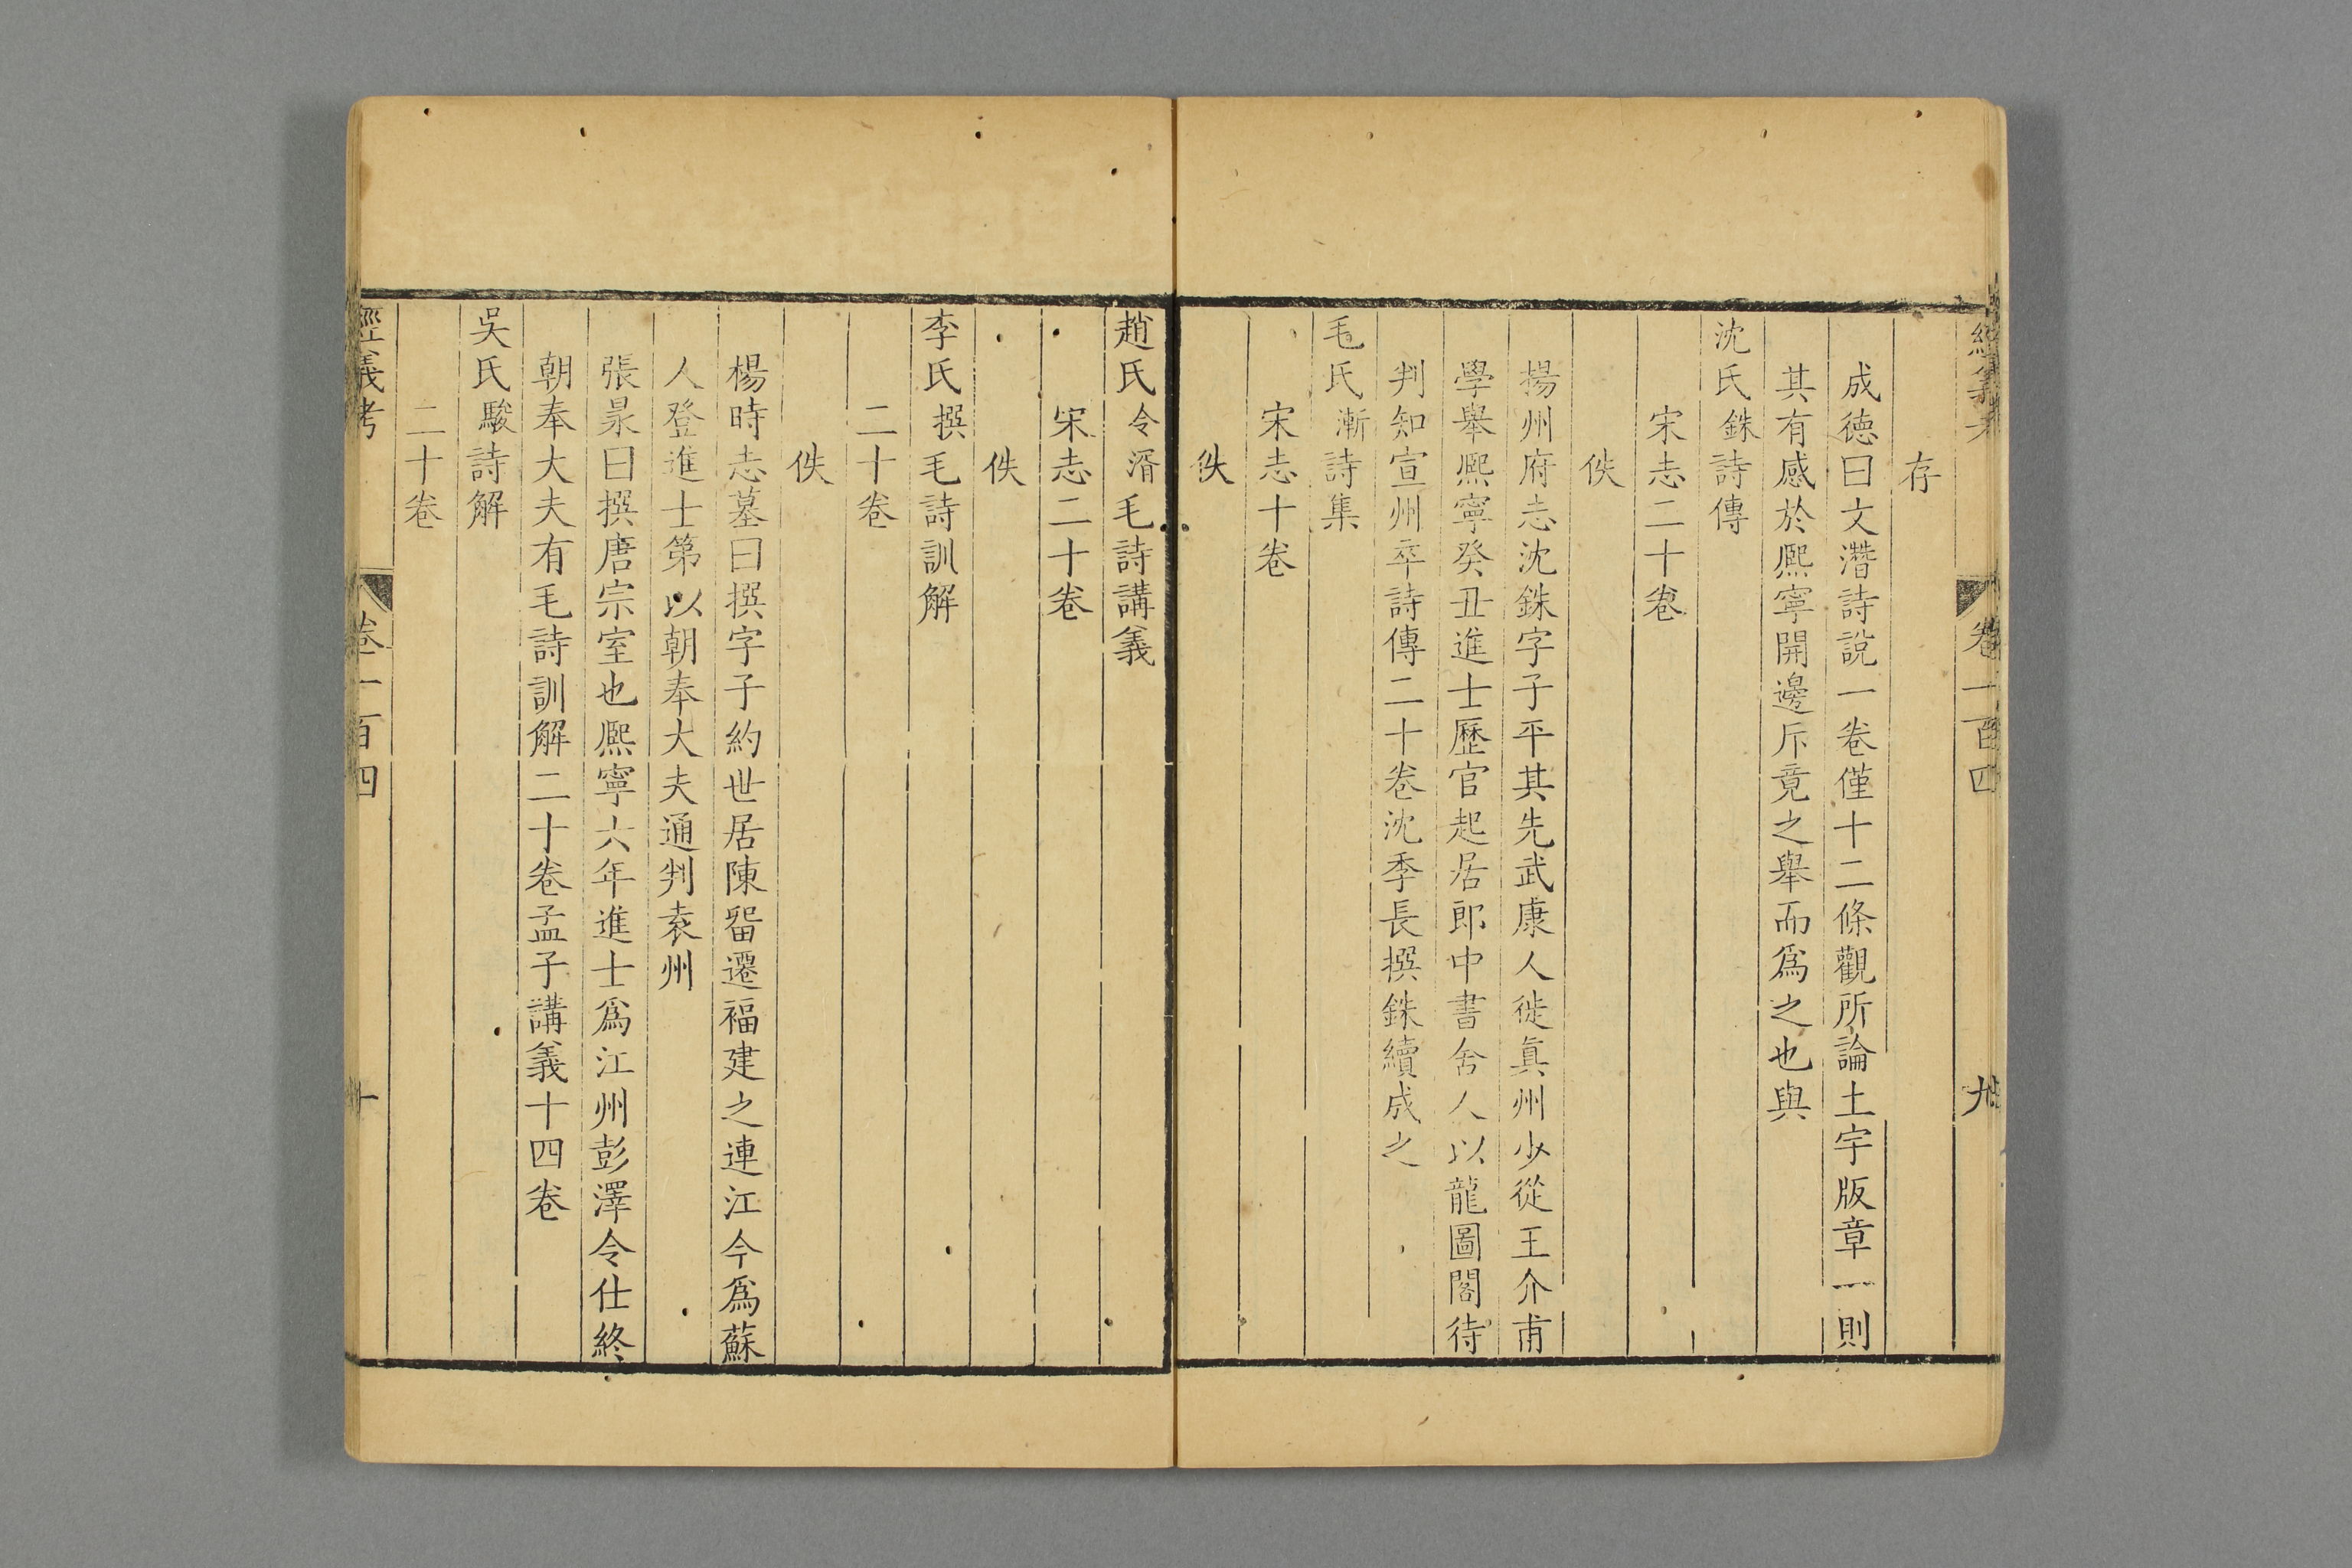 經義考 卷一百四 九
存
成德曰文潛詩說一卷僅十二條觀所論土宇版章一則
其有感於熙寧開邊斥竟之舉而爲之也與
沈氏銖詩傳
宋志二十卷
佚
揚州府志沈銖字子平其先武康人徙眞州少從王介甫
學舉熙寧癸丑進士歷官起居郎中書舍人以龍圖閣待
判知宣州卒詩傳二十卷沈季長撰銖續成之
毛氏漸詩集
宋志十卷
佚
趙氏令湑毛詩講義
宋志二十卷
佚
李氏撰毛詩訓解
二十卷
佚
楊時志墓曰撰字子約世居陳留遷福建之連江今爲蘇
人登進士第以朝奉大夫通判袁州
張杲曰撰唐宗室也熙寧六年進士爲江州彭澤令仕終
朝奉大夫有毛詩訓解二十卷孟子講義十四卷
吳氏駿詩解
二十卷
經義考 卷一百四 十